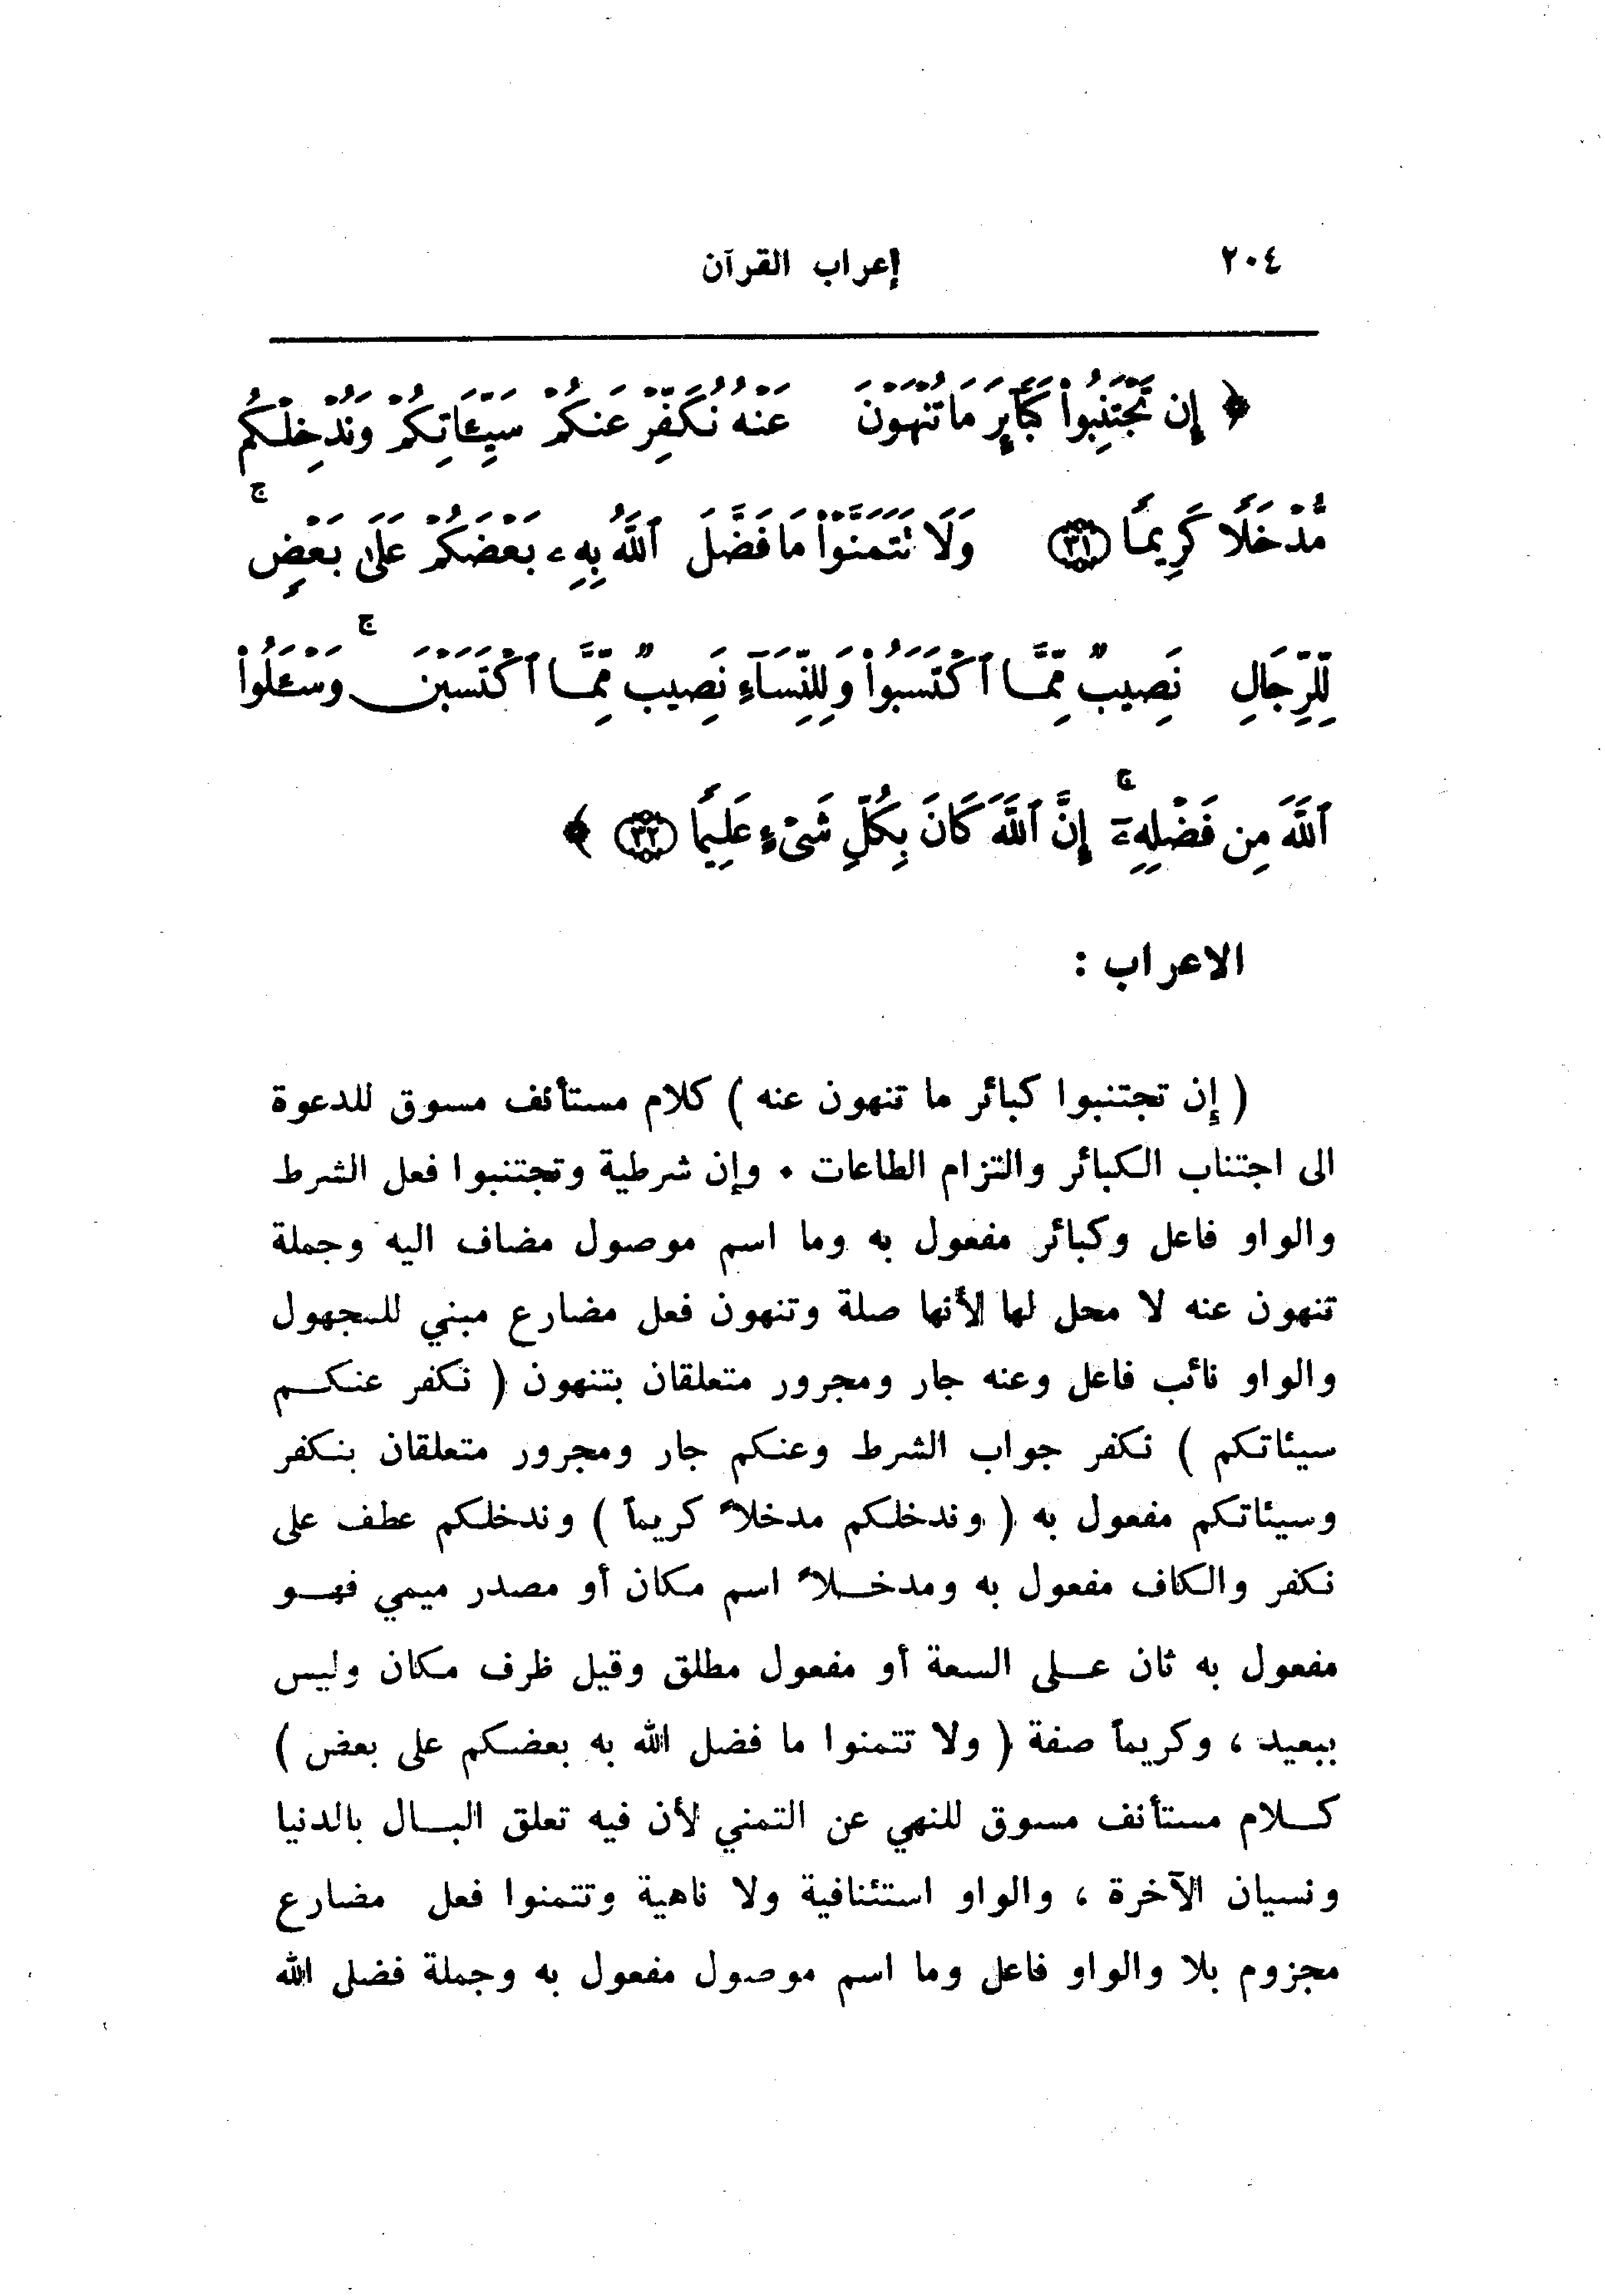 ٢٠٤ إعراب القرآن
﴿ إِن تَجْتَنِبُوا۟ كَبَآئِرَ مَا تُنْهَوْنَ عَنْهُ نُكَفِّرْ عَنكُمْ سَيِّـَٔاتِكُمْ وَنُدْخِلْكُم
مُّدْخَلًا كَرِيمًا ﴿٣١﴾ وَلَا تَتَمَنَّوْا۟ مَا فَضَّلَ ٱللَّهُ بِهِۦ بَعْضَكُمْ عَلَىٰ بَعْضٍ ۚ
لِّلرِّجَالِ نَصِيبٌ مِّمَّا ٱكْتَسَبُوا۟ وَلِلنِّسَآءِ نَصِيبٌ مِّمَّا ٱكْتَسَبْنَ ۚ وَسْـَٔلُوا۟
ٱللَّهَ مِن فَضْلِهِۦٓ ۚ إِنَّ ٱللَّهَ كَانَ بِكُلِّ شَىْءٍ عَلِيمًا ﴿٣٢﴾ ﴾
الاعراب :
( إن تجتنبوا كبائر ما تنهون عنه ) كلام مستأنف مسوق للدعوة
الى اجتناب الكبائر والتزام الطاعات ٠ وإن شرطية وتجتنبوا فعل الشرط
والواو فاعل وكبائر مفعول به وما اسم موصول مضاف اليه وجملة
تنهون عنه لا محل لها لأنها صلة وتنهون فعل مضارع مبني للمجهول
والواو نائب فاعل وعنه جار ومجرور متعلقان بتنهون ( نكفر عنكم
سيئاتكم ) نكفر جواب الشرط وعنكم جار ومجرور متعلقان بنكفر
وسيئاتكم مفعول به ( وندخلكم مدخلاً كريماً ) وندخلكم عطف على
نكفر والكاف مفعول به ومدخلاً اسم مكان أو مصدر ميمي فهو
مفعول به ثان على السعة أو مفعول مطلق وقيل ظرف مكان وليس
ببعيد ، وكريماً صفة ( ولا تتمنوا ما فضل الله به بعضكم على بعض )
كلام مستأنف مسوق للنهي عن التمني لأن فيه تعلق البال بالدنيا
ونسيان الآخرة ، والواو استئنافية ولا ناهية وتتمنوا فعل مضارع
مجزوم بلا والواو فاعل وما اسم موصول مفعول به وجملة فضل الله